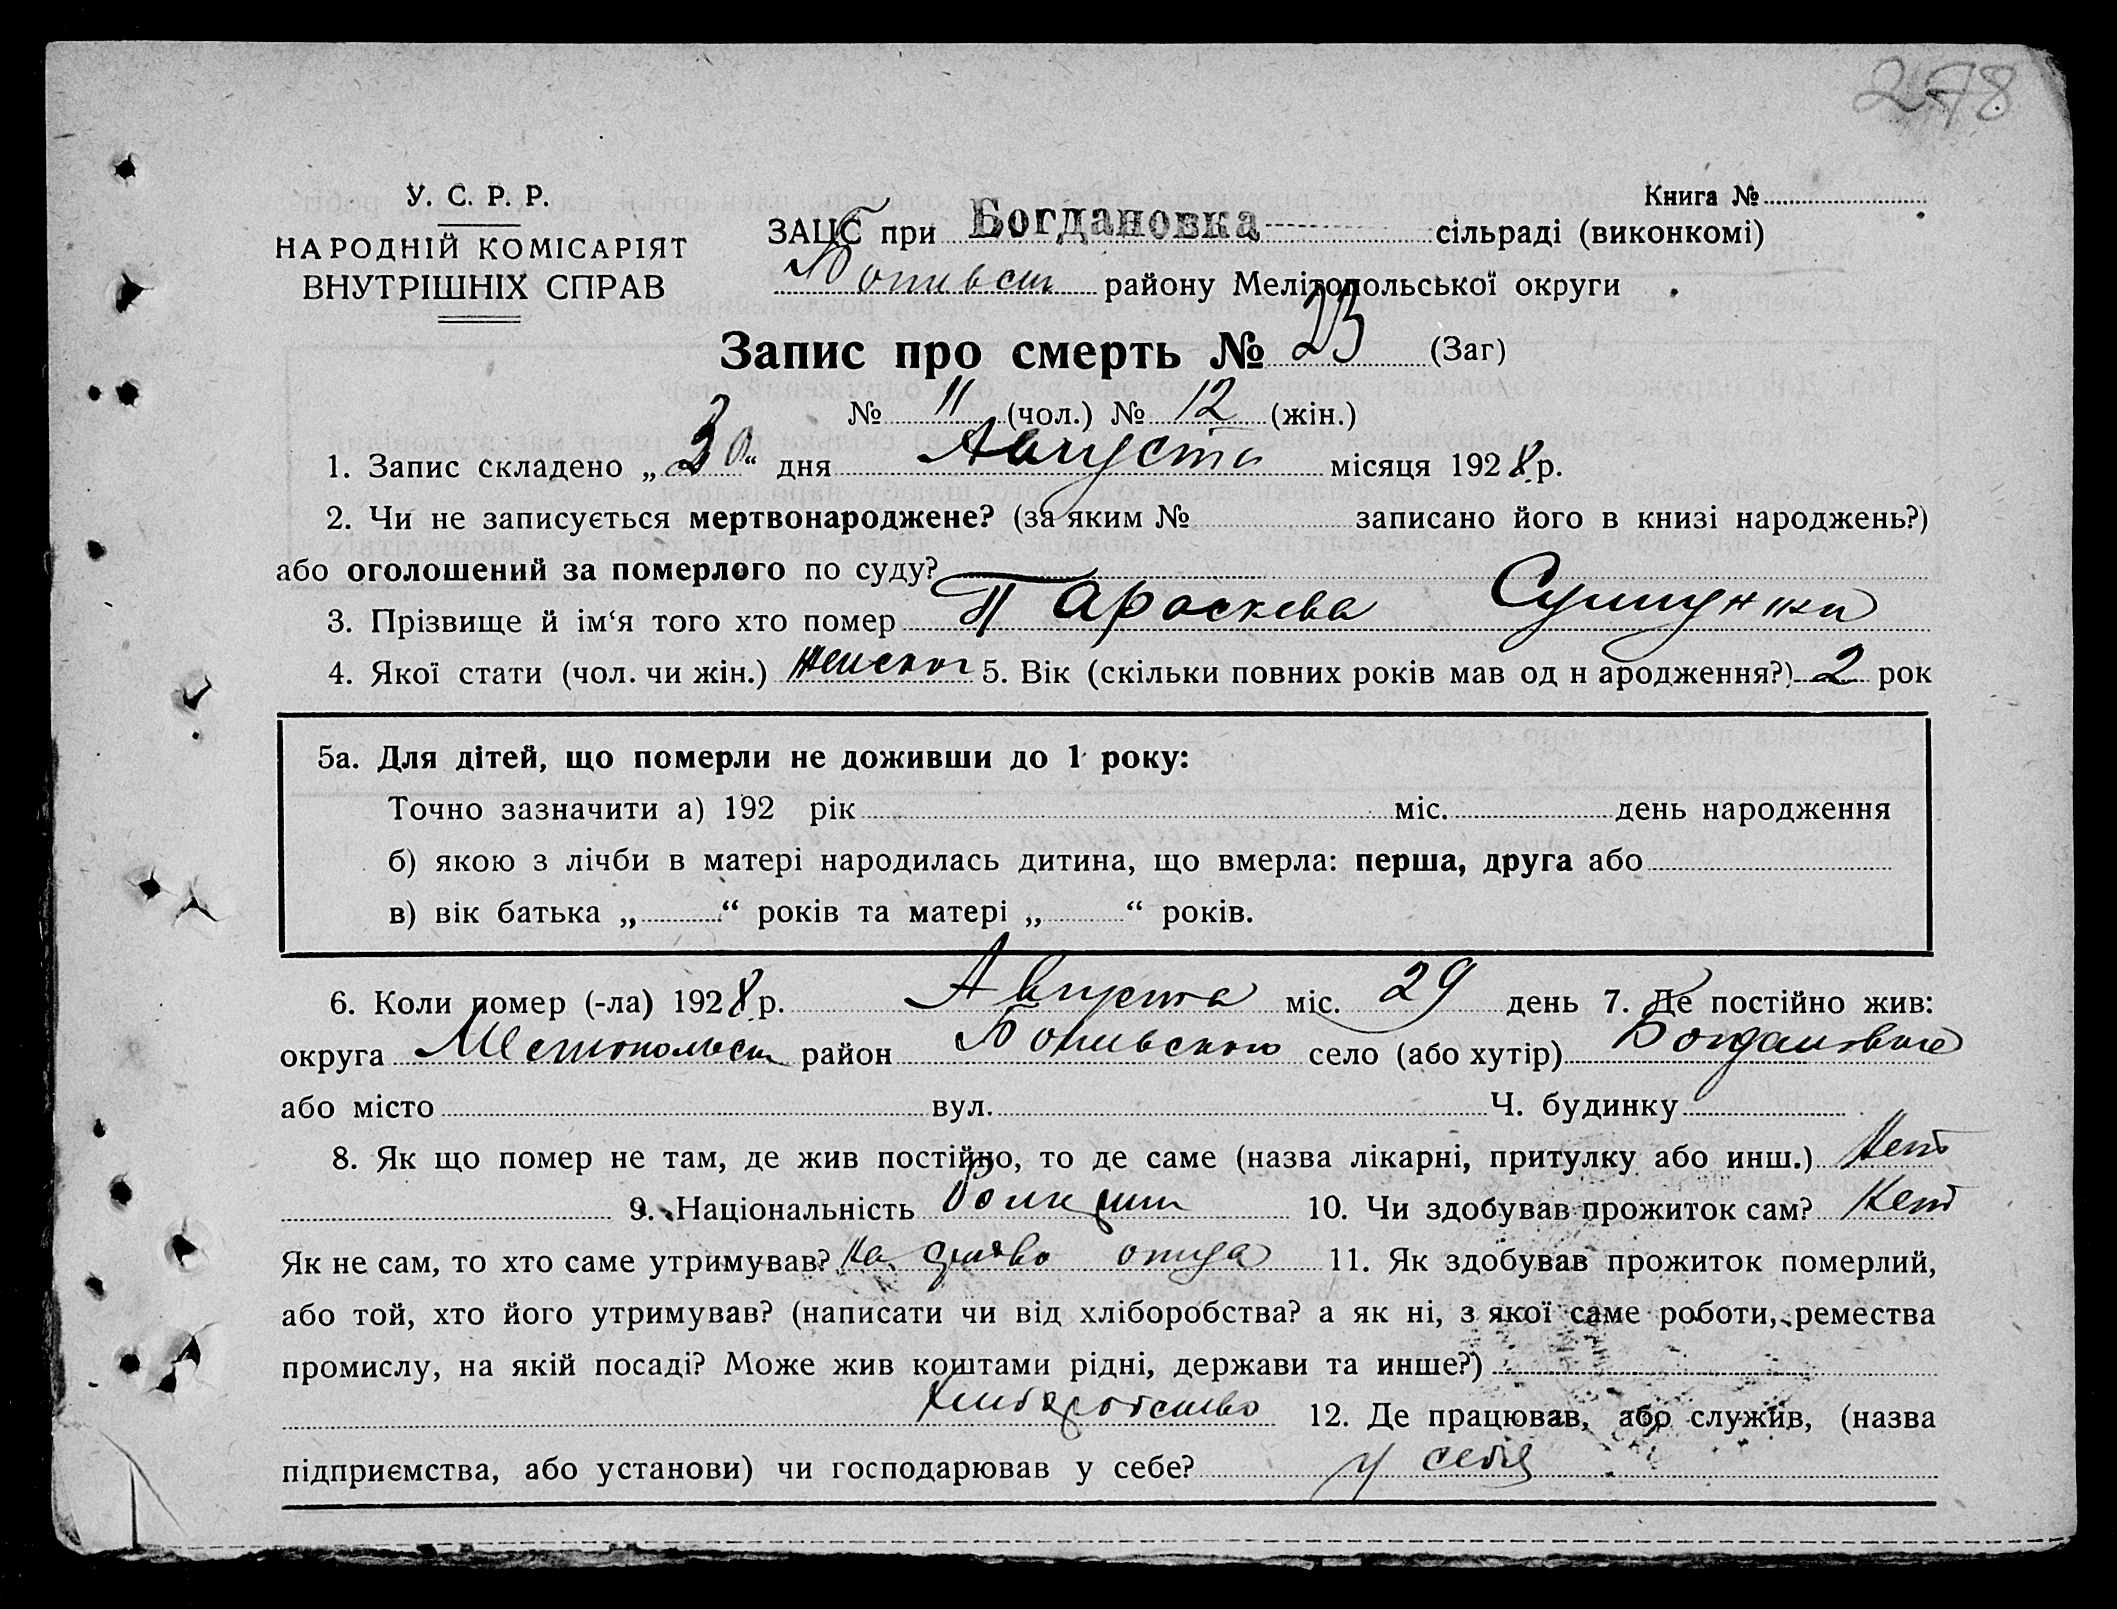 278
У. С. Р. Р.
НАРОДНІЙ КОМІСАРІЯТ
ВНУТРІШНІХ СПРАВ
Книга №
ЗАЦС при Богдановка сільраді (виконкомі)
району Мелітопольської округи
Запис про смерть № 23 (Заг)
№ 11 (чол.) № 12 (жін.)
1. Запис складено „30“ дня Августа місяця 1928 р.
2. Чи не записується мертвонароджене? (за яким № записано його в книзі народжень?)
або оголошений за померлого по суду?
3. Прізвище й ім‘я того хто помер Параскева
4. Якої стати (чол. чи жін.) женског 5. Вік (скільки повних років мав од н ародження?) 2 рок
5а. Для дітей, що померли не доживши до 1 року:
Точно зазначити а) 192 рік міс. день народження
б) якою з лічби в матері народилась дитина, що вмерла: перша, друга або
в) вік батька „ “ років та матері „ “ років.
6. Коли помер (-ла) 1928 р. Августа міс. 29 день 7. Де постійно жив:
округа район село (або хутір) Богдановке
або місто вул. Ч. будинку
8. Як що помер не там, де жив постійно, то де саме (назва лікарні, притулку або инш.) Нет
9. Національність 10. Чи здобував прожиток сам? Нет
Як не сам, то хто саме утримував? На отца 11. Як здобував прожиток померлий,
або той, хто його утримував? (написати чи від хліборобства? а як ні, з якої саме роботи, ремества
промислу, на якій посаді? Може жив коштами рідні, держави та инше?)
12. Де працював, або служив, (назва
підприємства, або установи) чи господарював у себе? у себя